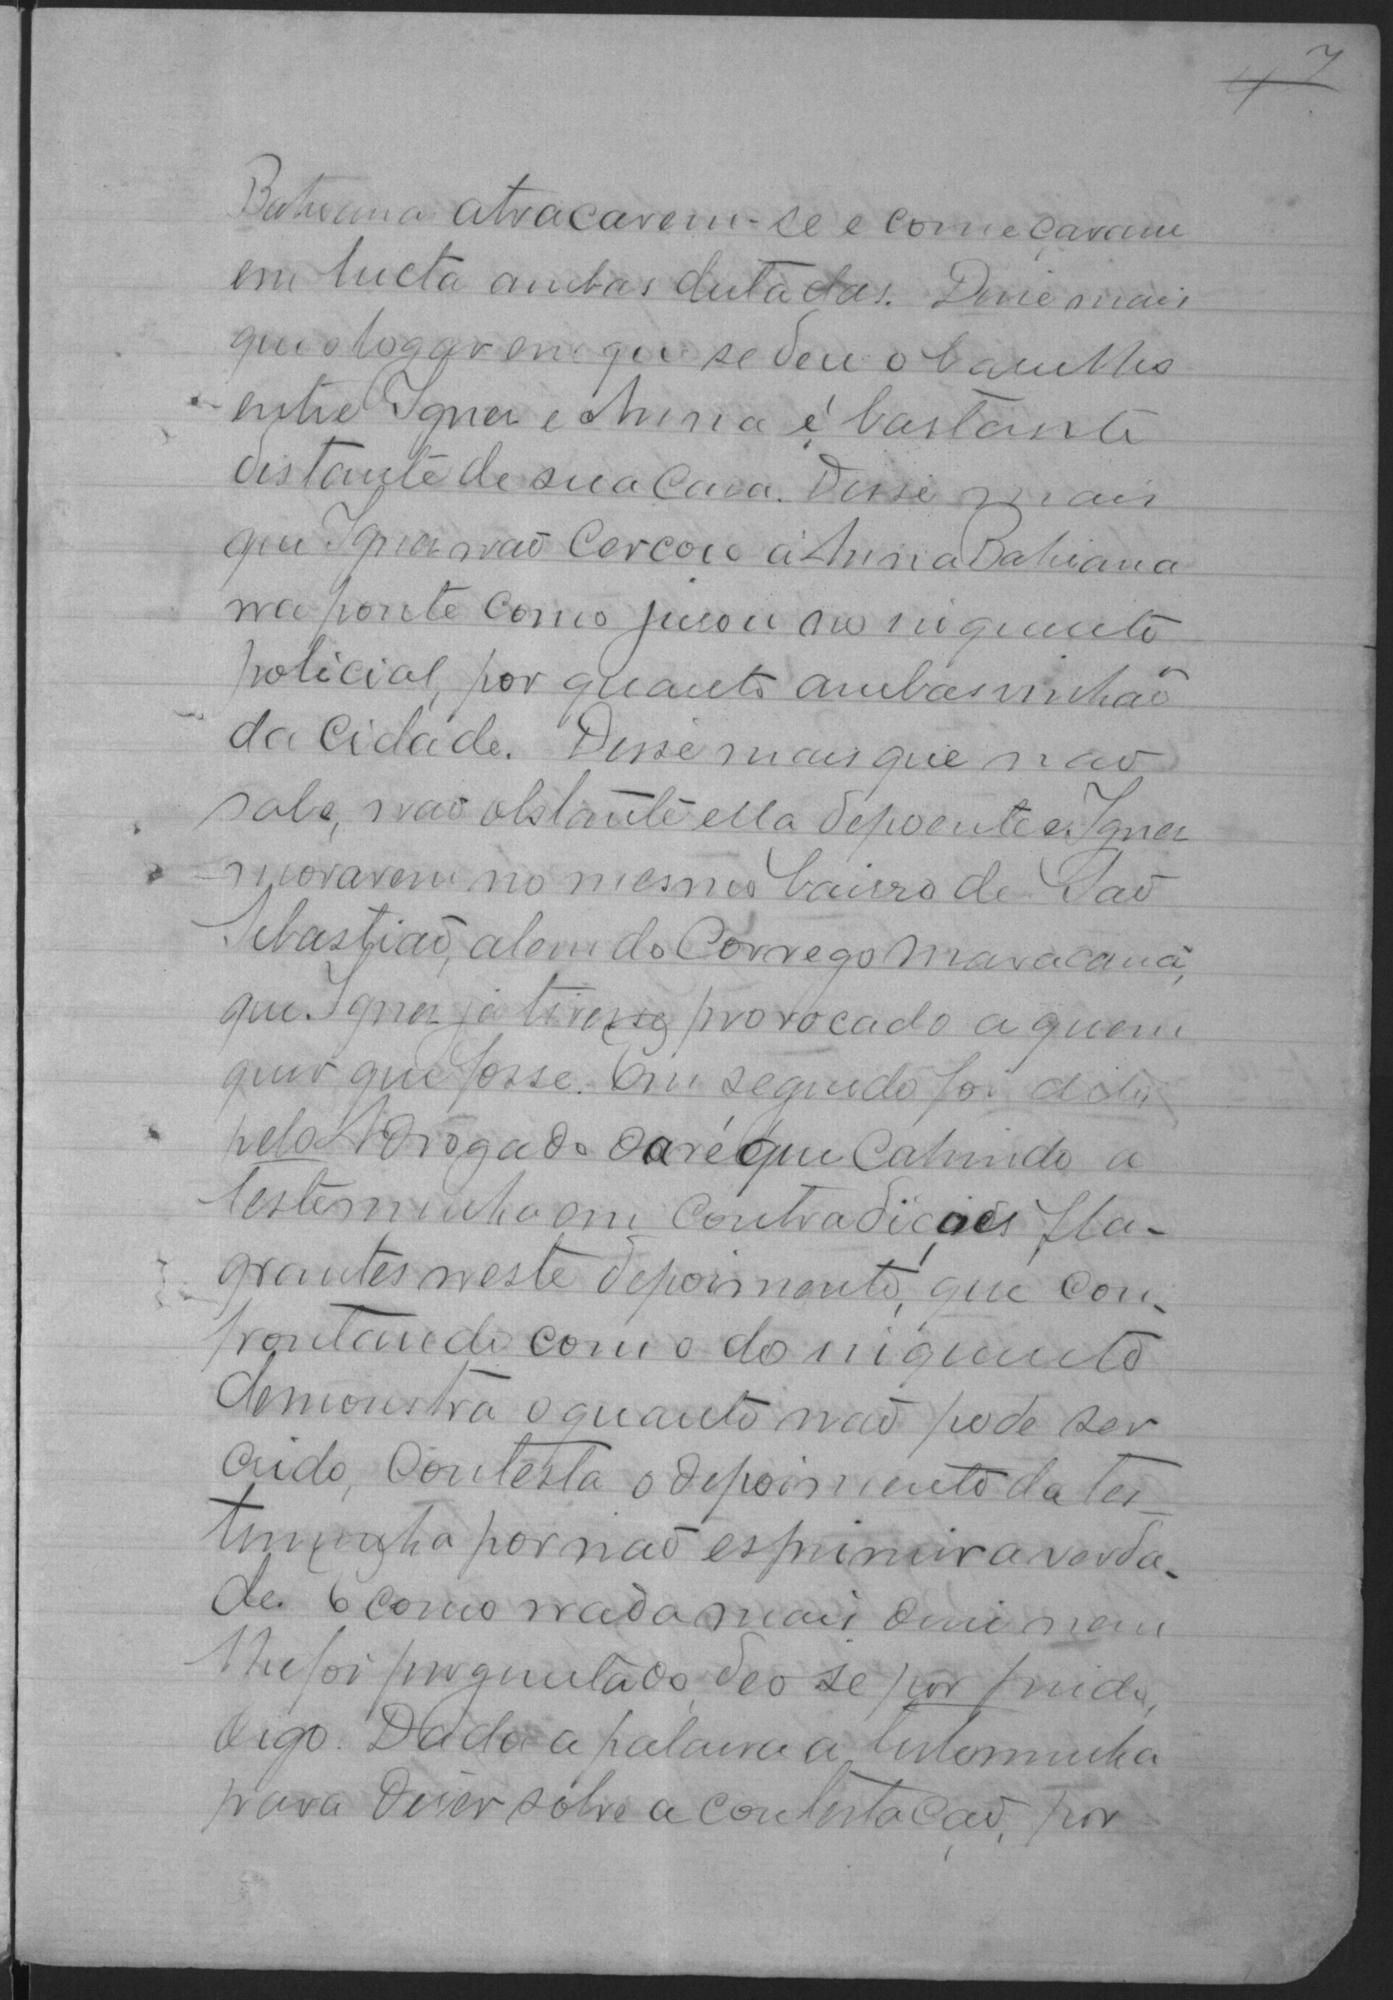 47
Bahiana atracarem-se e começaram
em lucta ambas deitadas. Disse mais
que o logar em que se deu o barulho
entre Ignez e Anna é bastante
distante de sua casa. Disse mais
que Ignez naõ cercou á Anna Bahiana
na ponte como jurou no inquerito
policial, por quanto ambas vinhaõ
da Cidade. Disse mais que naõ
sabe, naõ obstante ella depoente e Ignez
morarem no mesmo bairro de Saõ
Sebastiaõ, alem do Corrego Maracanã,
que Ignez já tivesse provocado a quem
quer que fosse. Em seguida foi dito
pelo Advogado da ré que cahindo a
testemunha em contradicçoẽs fla-
grantes neste depoimento, que con-
frontando com o do inquerito
demonstra o quanto naõ pode ser
crido, contesta o depoimento da tes-
temunha por naõ esprimir a verda-
de. E como nada mais disse nem
lhe foi perguntado, deo se por findo,
digo. Dada a palavra a testemunha
para dizer sobre a contestaçaõ, por